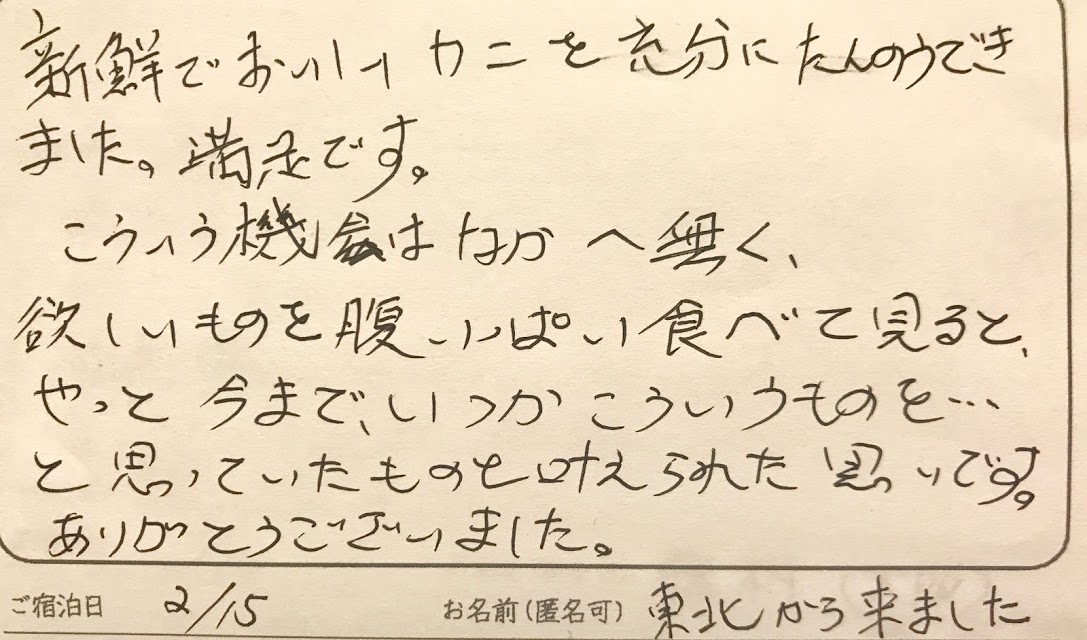 新鮮でおいしいカニを充分にたんのうでき
ました。満足です。
こういう機会はなかへ無く、
欲しいものを腹いっぱい食べて見ると、
やっと今まで、いつかこういうものを…
と思っていたものを叶えられた思いです。
ありがとうございました。
ご宿泊日 2/15 お名前(匿名可) 東北から来ました